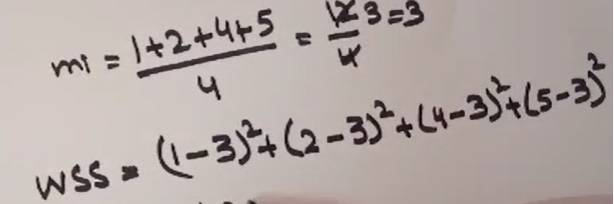 mi = (1+2+4+5)/4 = 12/4 3 = 3
WSS = (1-3)²+(2-3)²+(4-3)²+(5-3)²